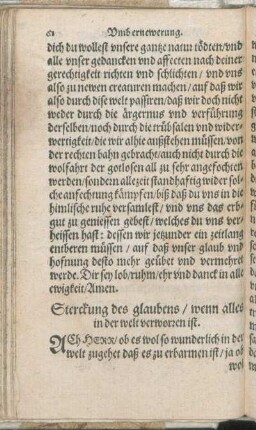 62 Vmb ernewerung.
dich du wollest vnsere gantze natur tödten/vnd
alle vnser gedancken vnd affecten nach deiner
gerechtigkeit richten vnd schlichten / vnd vns
also zu newen creaturen machen / auf daß wir
also durch dise welt passiren/daß wir doch nicht
weder durch die ärgernus vnd verführung
derselben/noch durch die trübsalen vnd wider-
wertigkeit/die wir alhie außstehen müssen/von
der rechten bahn gebracht/auch nicht durch die
wolfahrt der gotlosen all zu sehr angefochten
werden/sondern allezeit standhaftig wider sol-
che anfechtung kämpfen/biß daß du vns in die
himlische ruhe versamlest/vnd vns das erb-
gut zu geniessen gebest / welches du vns ver-
heissen hast: dessen wir jetzunder ein zeitlang
entberen müssen / auf daß vnser glaub vnd
hofnung desto mehr geübet vnd vermehret
werde. Dir sey lob/ruhm/ehr vnd danck in alle
ewigkeit/Amen.
Sterckung des glaubens / wenn alles
in der welt verworren ist.
ACh HERR/ ob es wol so wunderlich in der
welt zugehet daß es zu erbarmen ist/ ja ob
wol